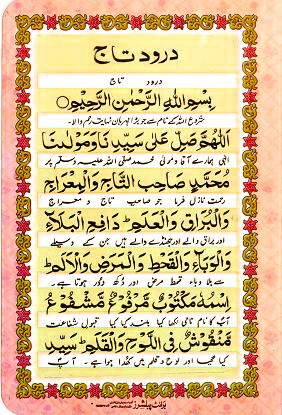 درود تاج
درود تاج
بِسْمِ اللهِ الرَّحْمٰنِ الرَّحِيْمِ
شروع اللہ کے نام سے جو بڑا مہربان نہایت رحم والا۔
اَللّٰهُمَّ صَلِّ عَلٰى سَيِّدِنَا وَمَوْلٰىنَا
الٰہی ہمارے آقا و مولیٰ محمد صلی اللہ علیہ وسلم پر
مُحَمَّدٍ صَاحِبِ التَّاجِ وَالْمِعْرَاجِ
رحمت نازل فرما جو صاحب تاج و معراج
وَالْبُرَاقِ وَالْعَلَمِ دَافِعِ الْبَلَاءِ
اور براق والے اور جھنڈے والے ہیں جن کے وسیلے
وَالْوَبَاءِ وَالْقَحْطِ وَالْمَرَضِ وَالْاَلَمِ
سے بلا وبا قحط مرض اور دکھ دور ہوتا ہے۔
اِسْمُهٗ مَكْتُوْبٌ مَّرْفُوْعٌ مَّشْفُوْعٌ
آپ کا نام نامی لکھا گیا بلند کیا گیا قبول شفاعت
مَّنْقُوْشٌ فِي اللَّوْحِ وَالْقَلَمِ سَيِّدِ
کیا گیا اور لوح و قلم میں کھدا ہوا ہے۔ آپ